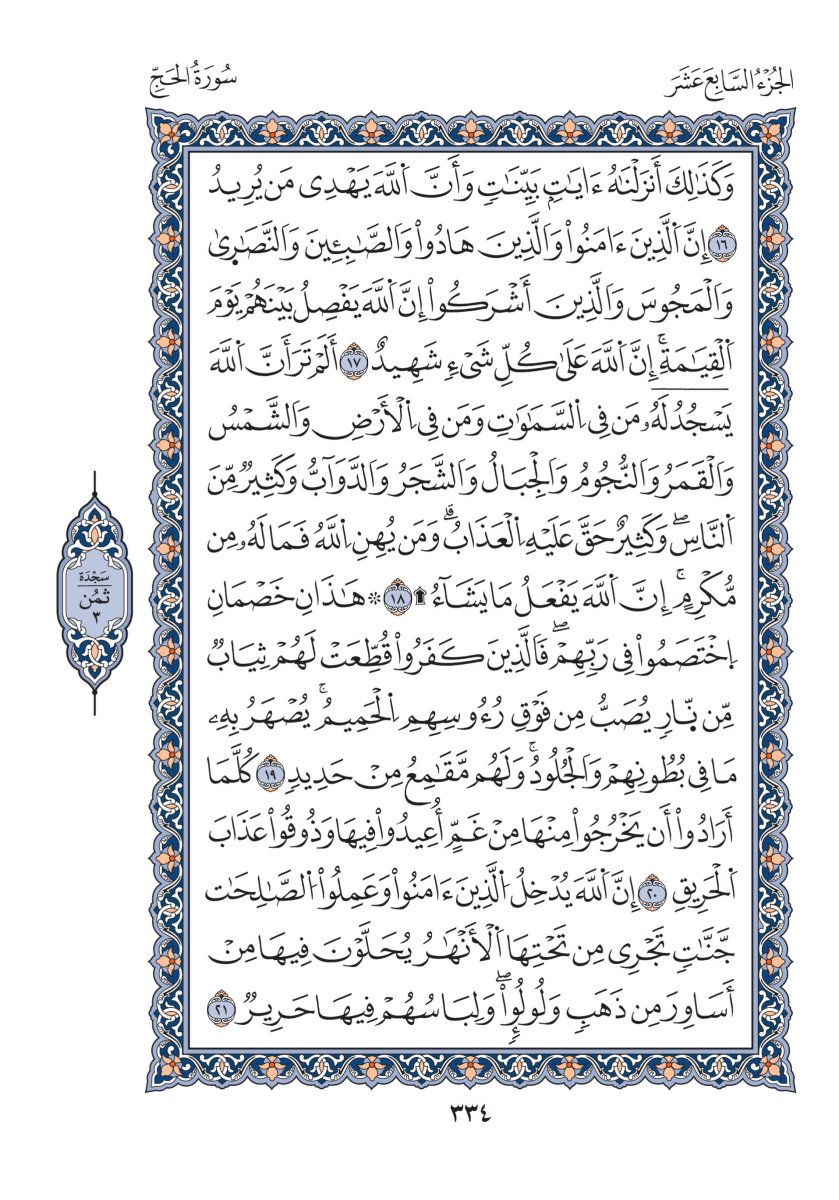 الجُزْءُ السَّابِعَ عَشَرَ
سُورَةُ الحَجِّ
وَكَذَٰلِكَ أَنزَلْنَٰهُ ءَايَٰتِۭ بَيِّنَٰتٖ وَأَنَّ ٱللَّهَ يَهْدِى مَن يُرِيدُ
١٦ إِنَّ ٱلَّذِينَ ءَامَنُواْ وَٱلَّذِينَ هَادُواْ وَٱلصَّٰبِـِٔينَ وَٱلنَّصَٰرٜىٰ
وَٱلْمَجُوسَ وَٱلَّذِينَ أَشْرَكُواْ إِنَّ ٱللَّهَ يَفْصِلُ بَيْنَهُمْ يَوْمَ
ٱلْقِيَٰمَةِۚ إِنَّ ٱللَّهَ عَلَىٰ كُلِّ شَىْءٖ شَهِيدٌ ١٧ أَلَمْ تَرَ أَنَّ ٱللَّهَ
يَسْجُدُ لَهُۥ مَن فِى ٱلسَّمَٰوَٰتِ وَمَن فِى ٱلْأَرْضِ وَٱلشَّمْسُ
وَٱلْقَمَرُ وَٱلنُّجُومُ وَٱلْجِبَالُ وَٱلشَّجَرُ وَٱلدَّوَآبُّ وَكَثِيرٞ مِّنَ
ٱلنَّاسِۖ وَكَثِيرٌ حَقَّ عَلَيْهِ ٱلْعَذَابُۗ وَمَن يُهِنِ ٱللَّهُ فَمَا لَهُۥ مِن
مُّكْرِمٍۚ إِنَّ ٱللَّهَ يَفْعَلُ مَا يَشَآءُ ۩ ١٨ ۞ هَٰذَانِ خَصْمَانِ
ٱخْتَصَمُواْ فِى رَبِّهِمْۖ فَٱلَّذِينَ كَفَرُواْ قُطِّعَتْ لَهُمْ ثِيَابٞ
مِّن نّٜارٖ يُصَبُّ مِن فَوْقِ رُءُوسِهِمِ ٱلْحَمِيمُۚ يُصْهَرُ بِهِۦ
مَا فِى بُطُونِهِمْ وَٱلْجُلُودُۚ وَلَهُم مَّقَٰمِعُ مِنْ حَدِيدٖ ١٩ كُلَّمَا
أَرَادُواْ أَن يَخْرُجُواْ مِنْهَا مِنْ غَمٍّ أُعِيدُواْ فِيهَا وَذُوقُواْ عَذَابَ
ٱلْحَرِيقِ ٢٠ إِنَّ ٱللَّهَ يُدْخِلُ ٱلَّذِينَ ءَامَنُواْ وَعَمِلُواْ ٱلصَّٰلِحَٰت
جَّنَّٰتٖ تَجْرِى مِن تَحْتِهَا ٱلْأَنْهَٰرُ يُحَلَّوْنَ فِيهَا مِنْ
أَسَاوِرَ مِن ذَهَبٖ وَلُولُؤٖاْۖ وَلِبَاسُهُمْ فِيهَا حَرِيرٞ ٢١
سَجْدَة
ثُمُن
٣
٣٣٤